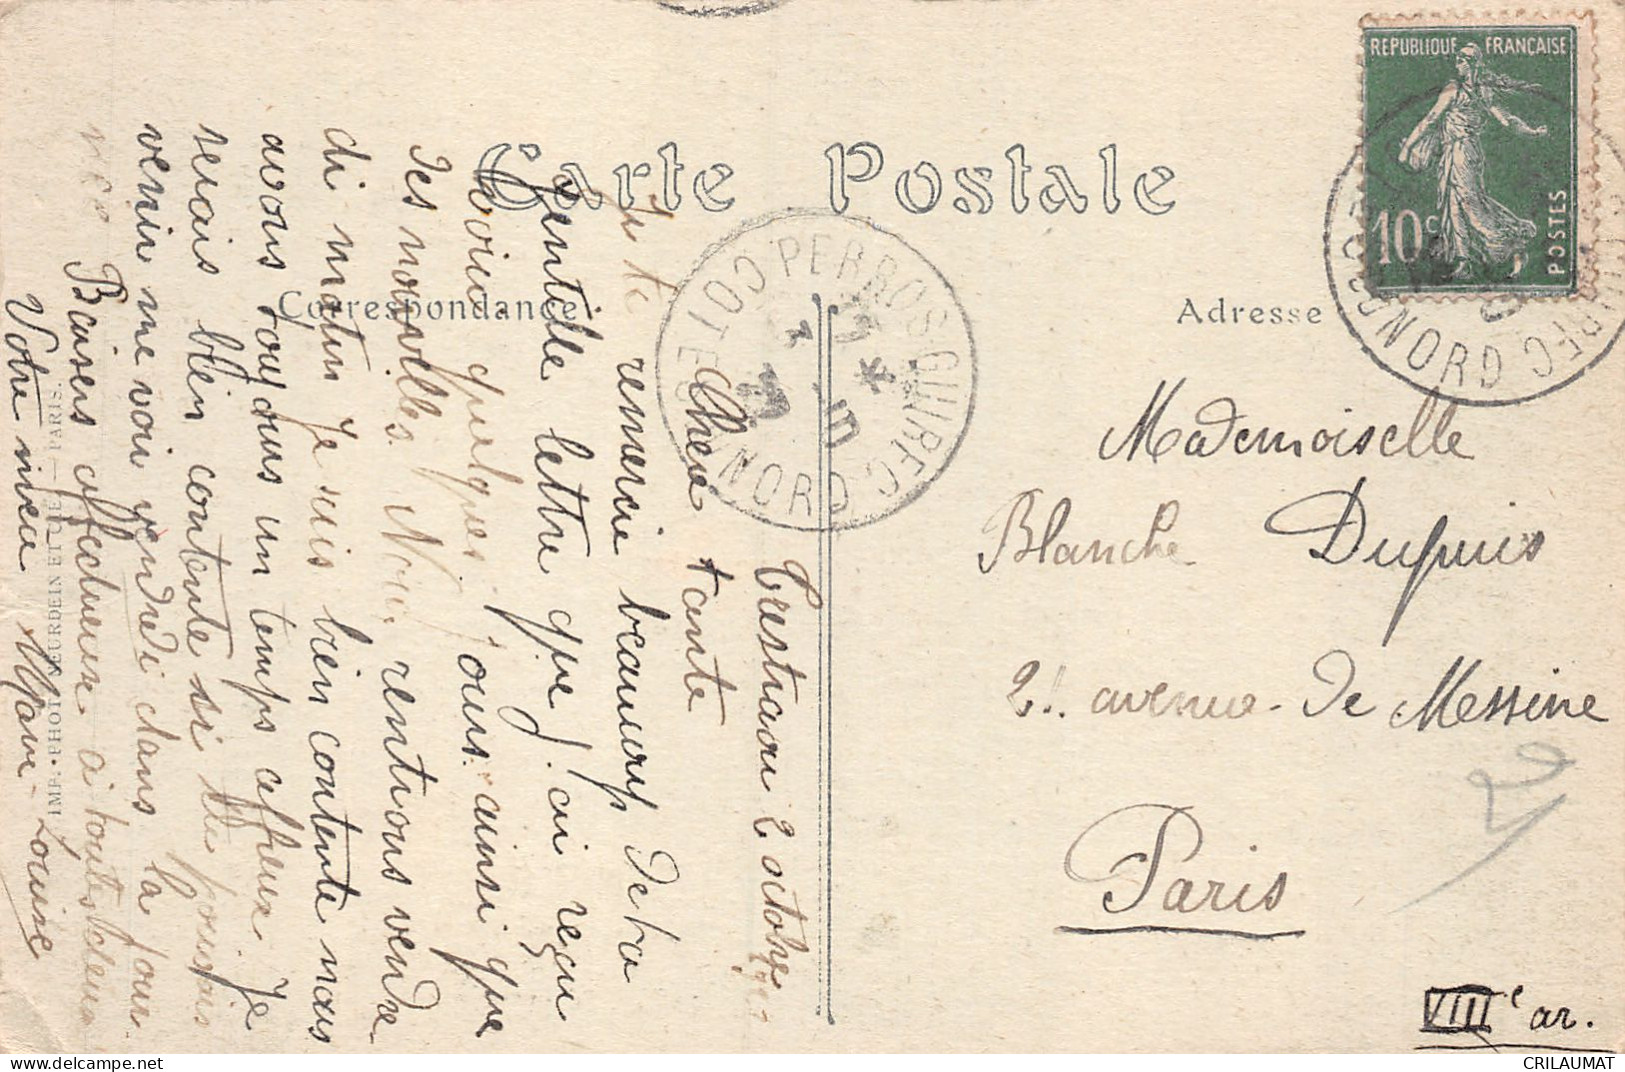 Carte Postale
Correspondance
Adresse
REPUBLIQUE FRANÇAISE
10c
POSTES
PERROS-GUIREC
COTES DU NORD
PERROS-GUIREC
COTES DU NORD
Trestraou 2 octobre
Chère tante
Je te remercie beaucoup de ta
gentille lettre que j'ai reçu
voici quelques jours ainsi que
des nouvelles. Nous rentrons vendre
di matin Je suis bien contente nous
avons toujours un temps affreux. Je
serais bien contente si tu pouvais
venir me voir vendredi dans la jour
née Baisers affectueux à toutes deux
Votre nièce Marie-Louise
IMP. PHOT. NEURDEIN ET CIE. — PARIS.
Mademoiselle
Blanche Dupuis
21. avenue de Messine
Paris
VIIIe ar.
CRILAUMAT